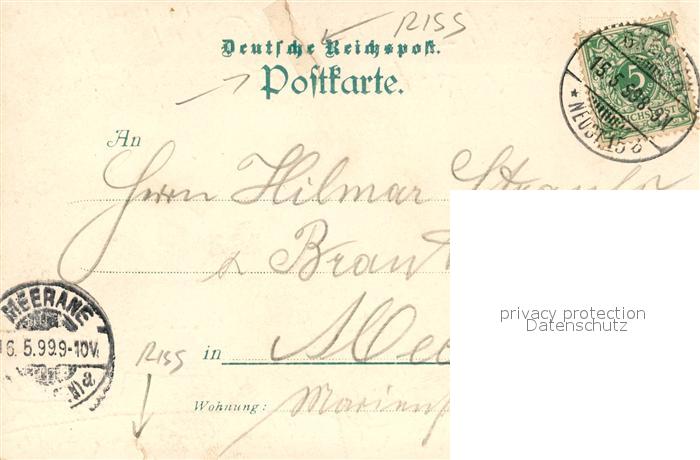 RISS
Deutsche Reichspost.
Postkarte.
5
REICHSPOST
NEUST.
An
Herrn Hilmar
& Braut
MEERANE
16.5.99.9-10V.
a
RISS
in Mee
Wohnung: Marien
privacy protection
Datenschutz